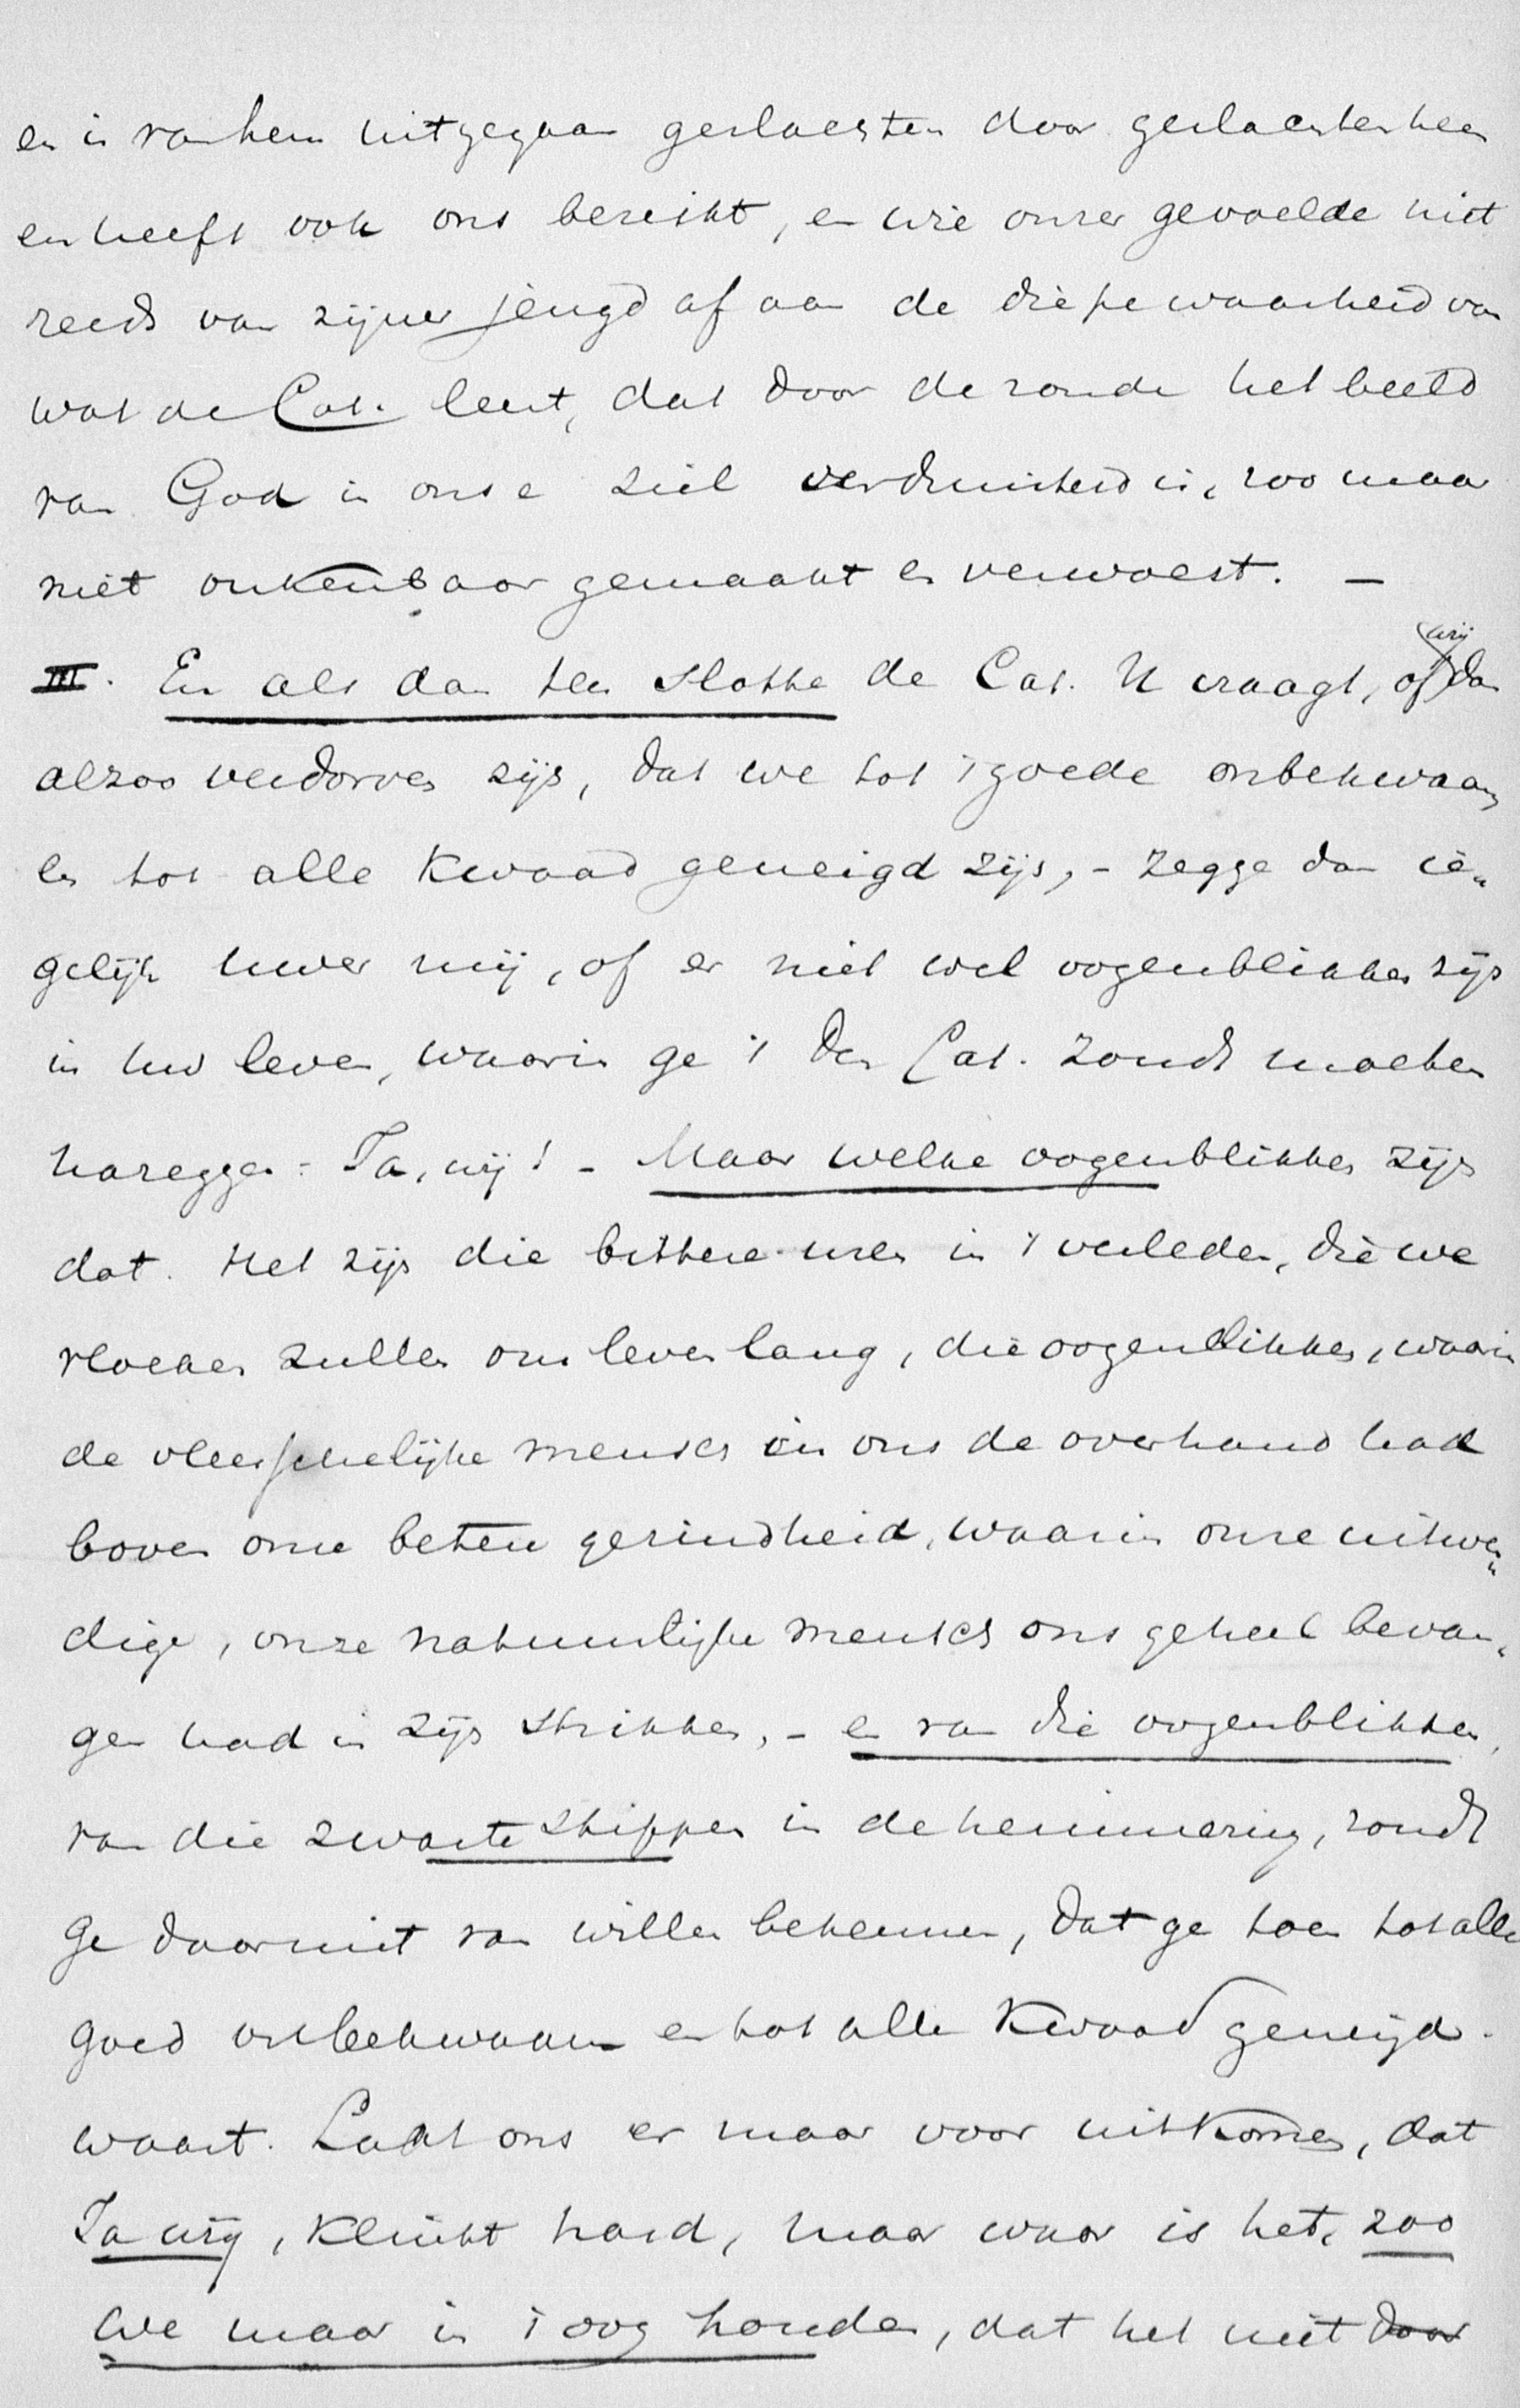 en is van hem uitgegaan geslachten door geslachten heen
en heeft ook ons bereikt, en wie onzer gevoelde niet
reeds van zijner jeugd af aan de diepe waarheid van
wat de Cat. leert, dat door de zonde het beeld
van God in onze ziel verduisterd is, zoo maar
niet onkenbaar gemaakt en verwoest. —
III. En als dan ten slotte de Cat. U vraagt, of wij dan
alzoo verdorven zijn, dat we tot 't goede onbekwaam
en tot alle kwaad geneigd zijn, - zegge dan ie„
gelijk uwer mij, of er niet wel oogenblikken zijn
in uw leven, waarin ge 't den Cat. zoudt moeten
nazeggen: Ja, wij! - Maar welke oogenblikken zijn
dat. Het zijn die bittere uren in 't verleden, die we
vloeken zullen ons leven lang, die oogenblikken, waarin
de vleeschelijke mensch in ons de overhand had
boven onze betere gezindheid, waarin onze uitwen„
dige, onze natuurlijke mensch ons geheel bevan„
gen had in zijn strikken, - en van die oogenblikken,
van die zwarte stippen in de herinnering, zoudt
ge daarmit van willen bekennen, dat ge toen tot alle
goed onbekwaam en tot alle kwaad geneigd
waart. Laat ons er maar voor uitkomen, dat
Ja wij, klinkt hard, maar waar is het, zoo
we maar in 't oog houden, dat het niet door